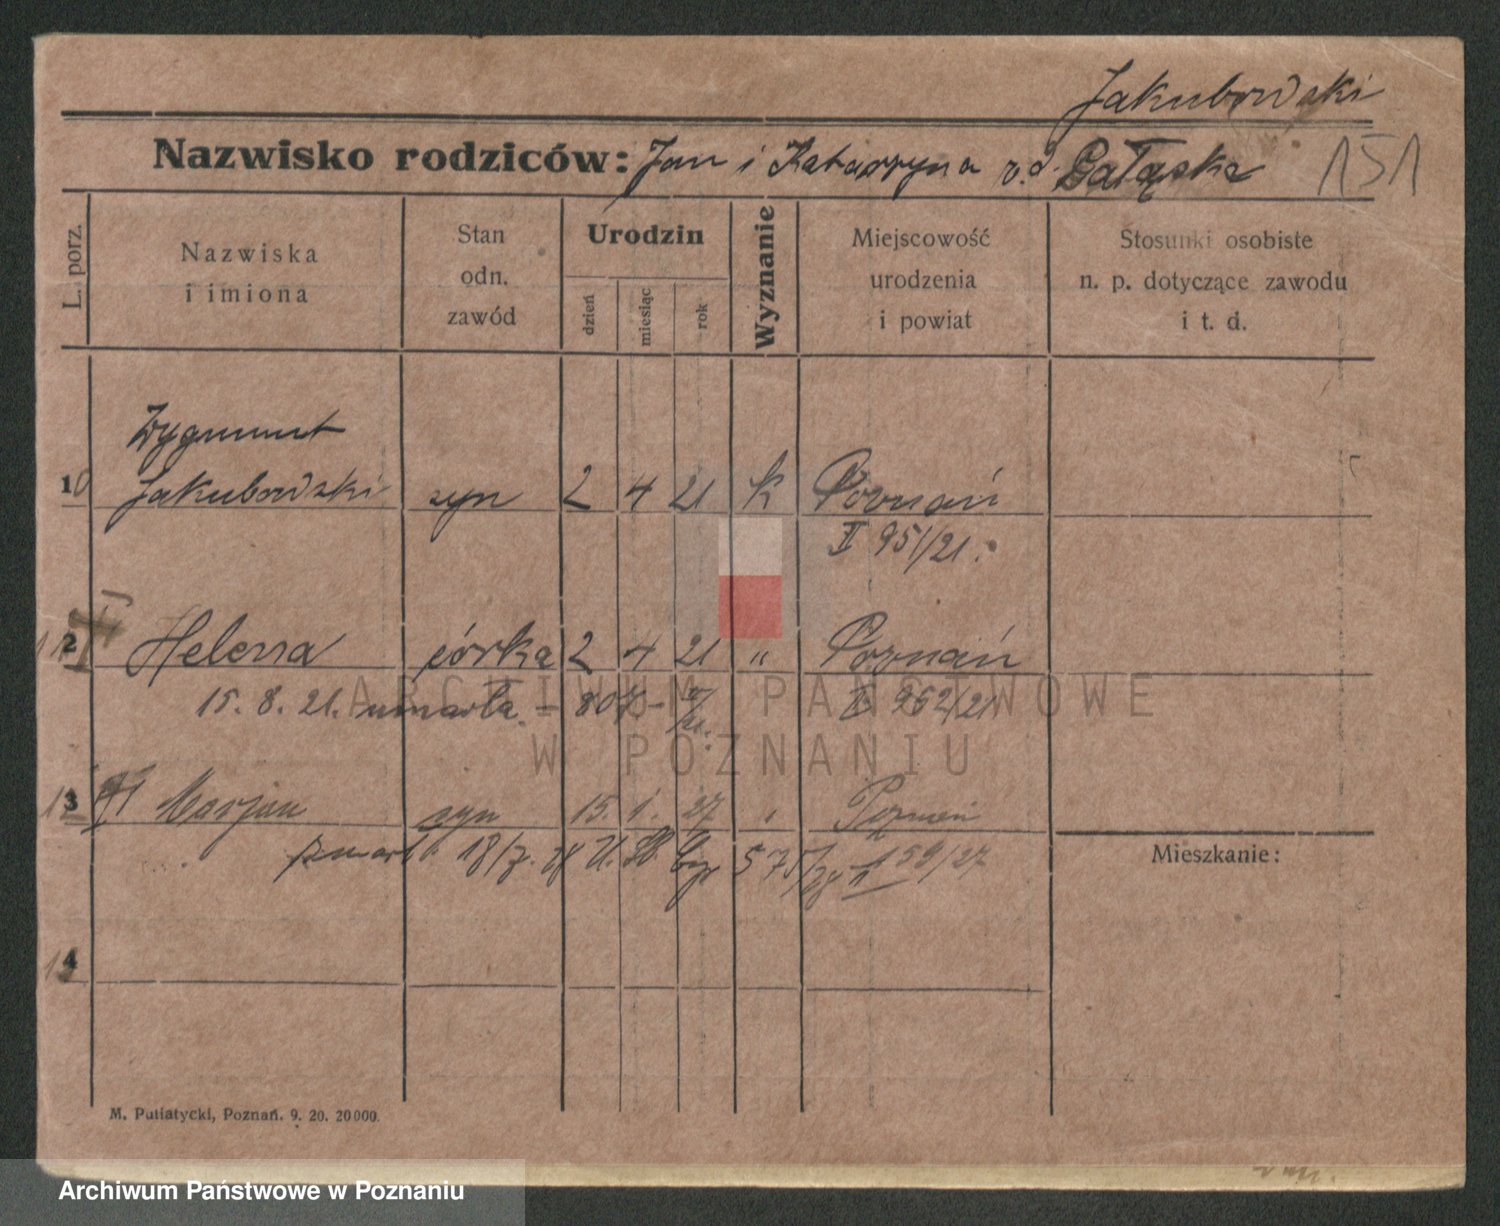 Jakubowski
Nazwisko rodziców: Jan i Katarzyna r.d. Gałąska 151
L. porz.
Nazwiska
i imiona
Stan
odn.
zawód
Urodzin
dzień
miesiąc
rok
Wyznanie
Miejscowość
urodzenia
i powiat
Stosunki osobiste
n. p. dotyczące zawodu
i t. d.
Zygmunt
10 Jakubowski syn 2 4 21 k Poznań
II 951/21.
2 Helena córka 2 4 21 " Poznań
15. 8. 21. umarła. 962/21
ARCHIWUM PAŃSTWOWE
W POZNANIU
3 Marjan syn 15. 1. 27 " Poznań
zmarł 18/7. 28 575/28 I 59/27
Mieszkanie:
4
M. Putiatycki, Poznań. 9. 20. 20000.
Archiwum Państwowe w Poznaniu